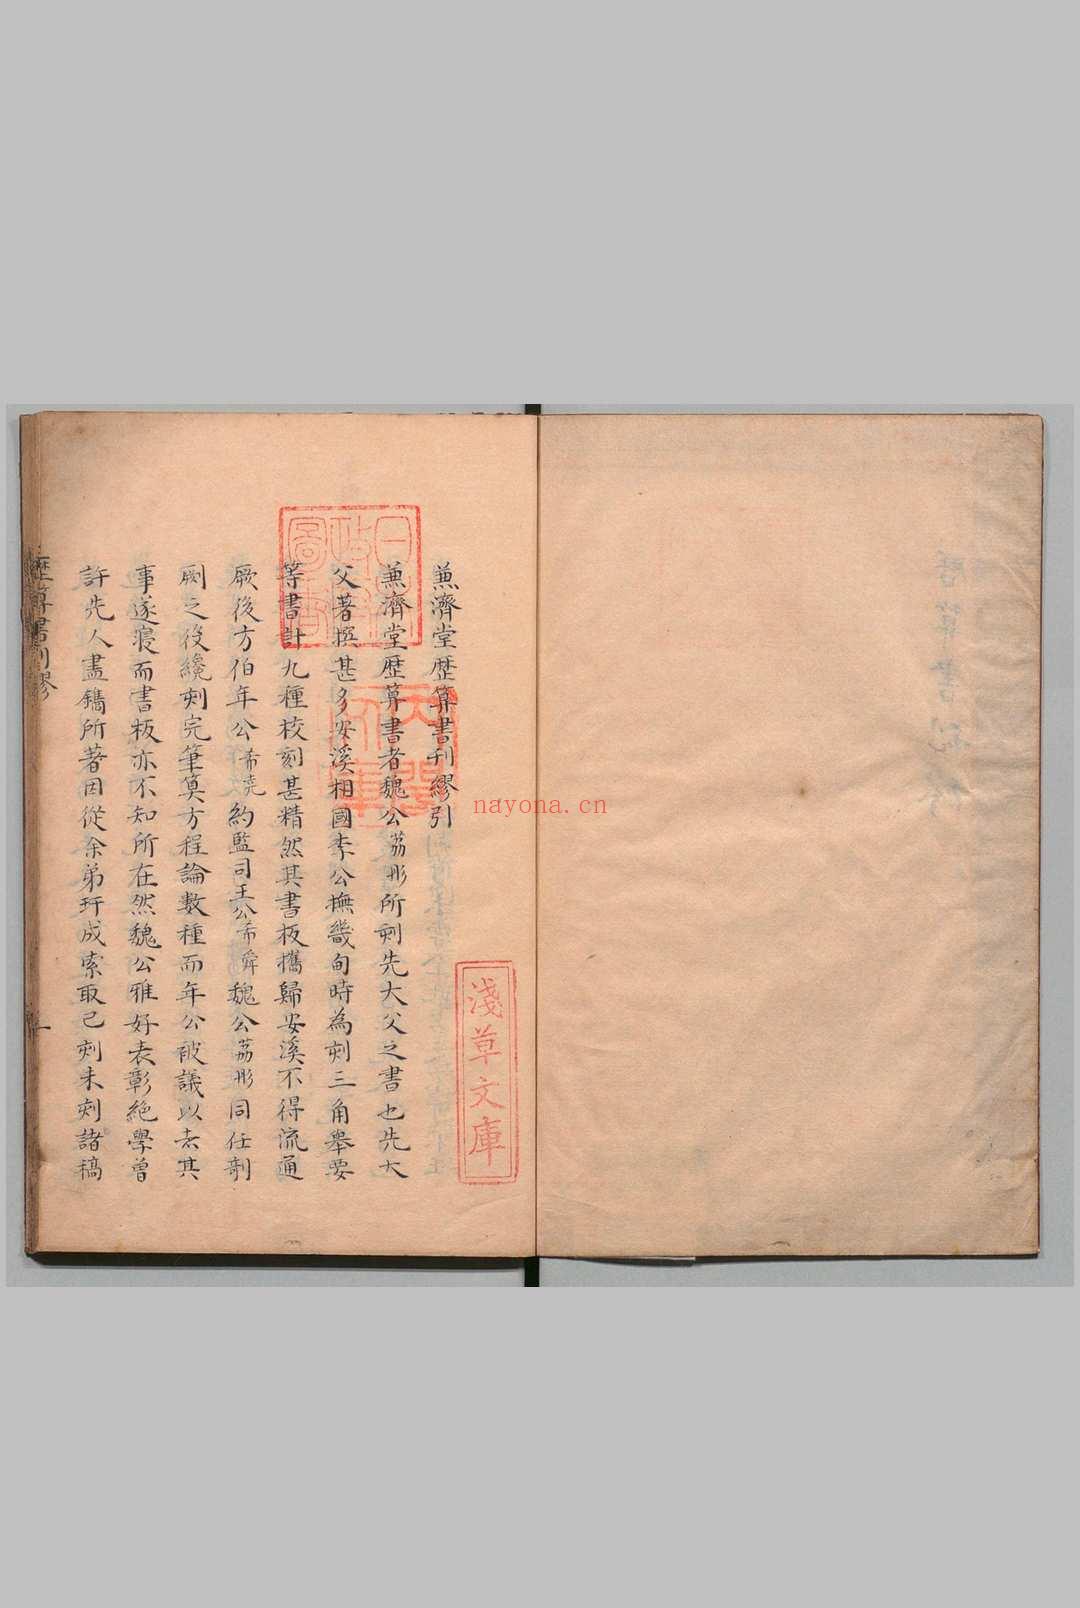 兼濟堂歴算書刊繆引
兼濟堂歴算書者魏公荔彤所刻先大父之書也先大
父著撰甚多安溪相國李公撫畿甸時為刻三角舉要
等書計九種校刻甚精然其書板攜歸安溪不得流通
厥後方伯年公希堯約監司王公希舜魏公荔彤同任剞
劂之役纔刻完筆算方程論數種而年公被議以去其
事遂寢而書板亦不知所在然魏公雅好表彰絶學曾
許先人盡鐫所著因從余弟玕成索取已刻未刻諸稿
歴算書刊繆
一
淺草文庫
日本政府圖書
nayona.cn